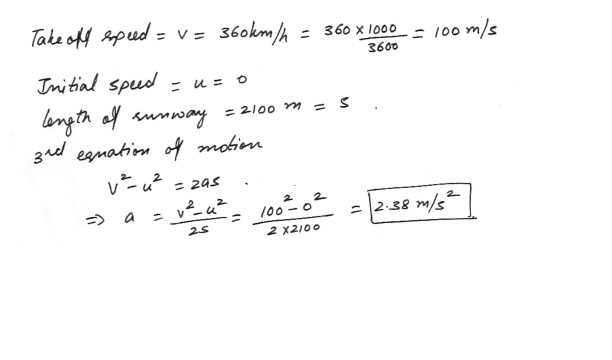 Take off speed = v = 360km/h = 360 x 1000 / 3600 = 100 m/s
Initial speed = u = 0
length of runway = 2100 m = s .
3rd equation of motion
v² - u² = 2as .
⇒ a = v² - u² / 2s = 100² - 0² / 2 x 2100 = 2.38 m/s²